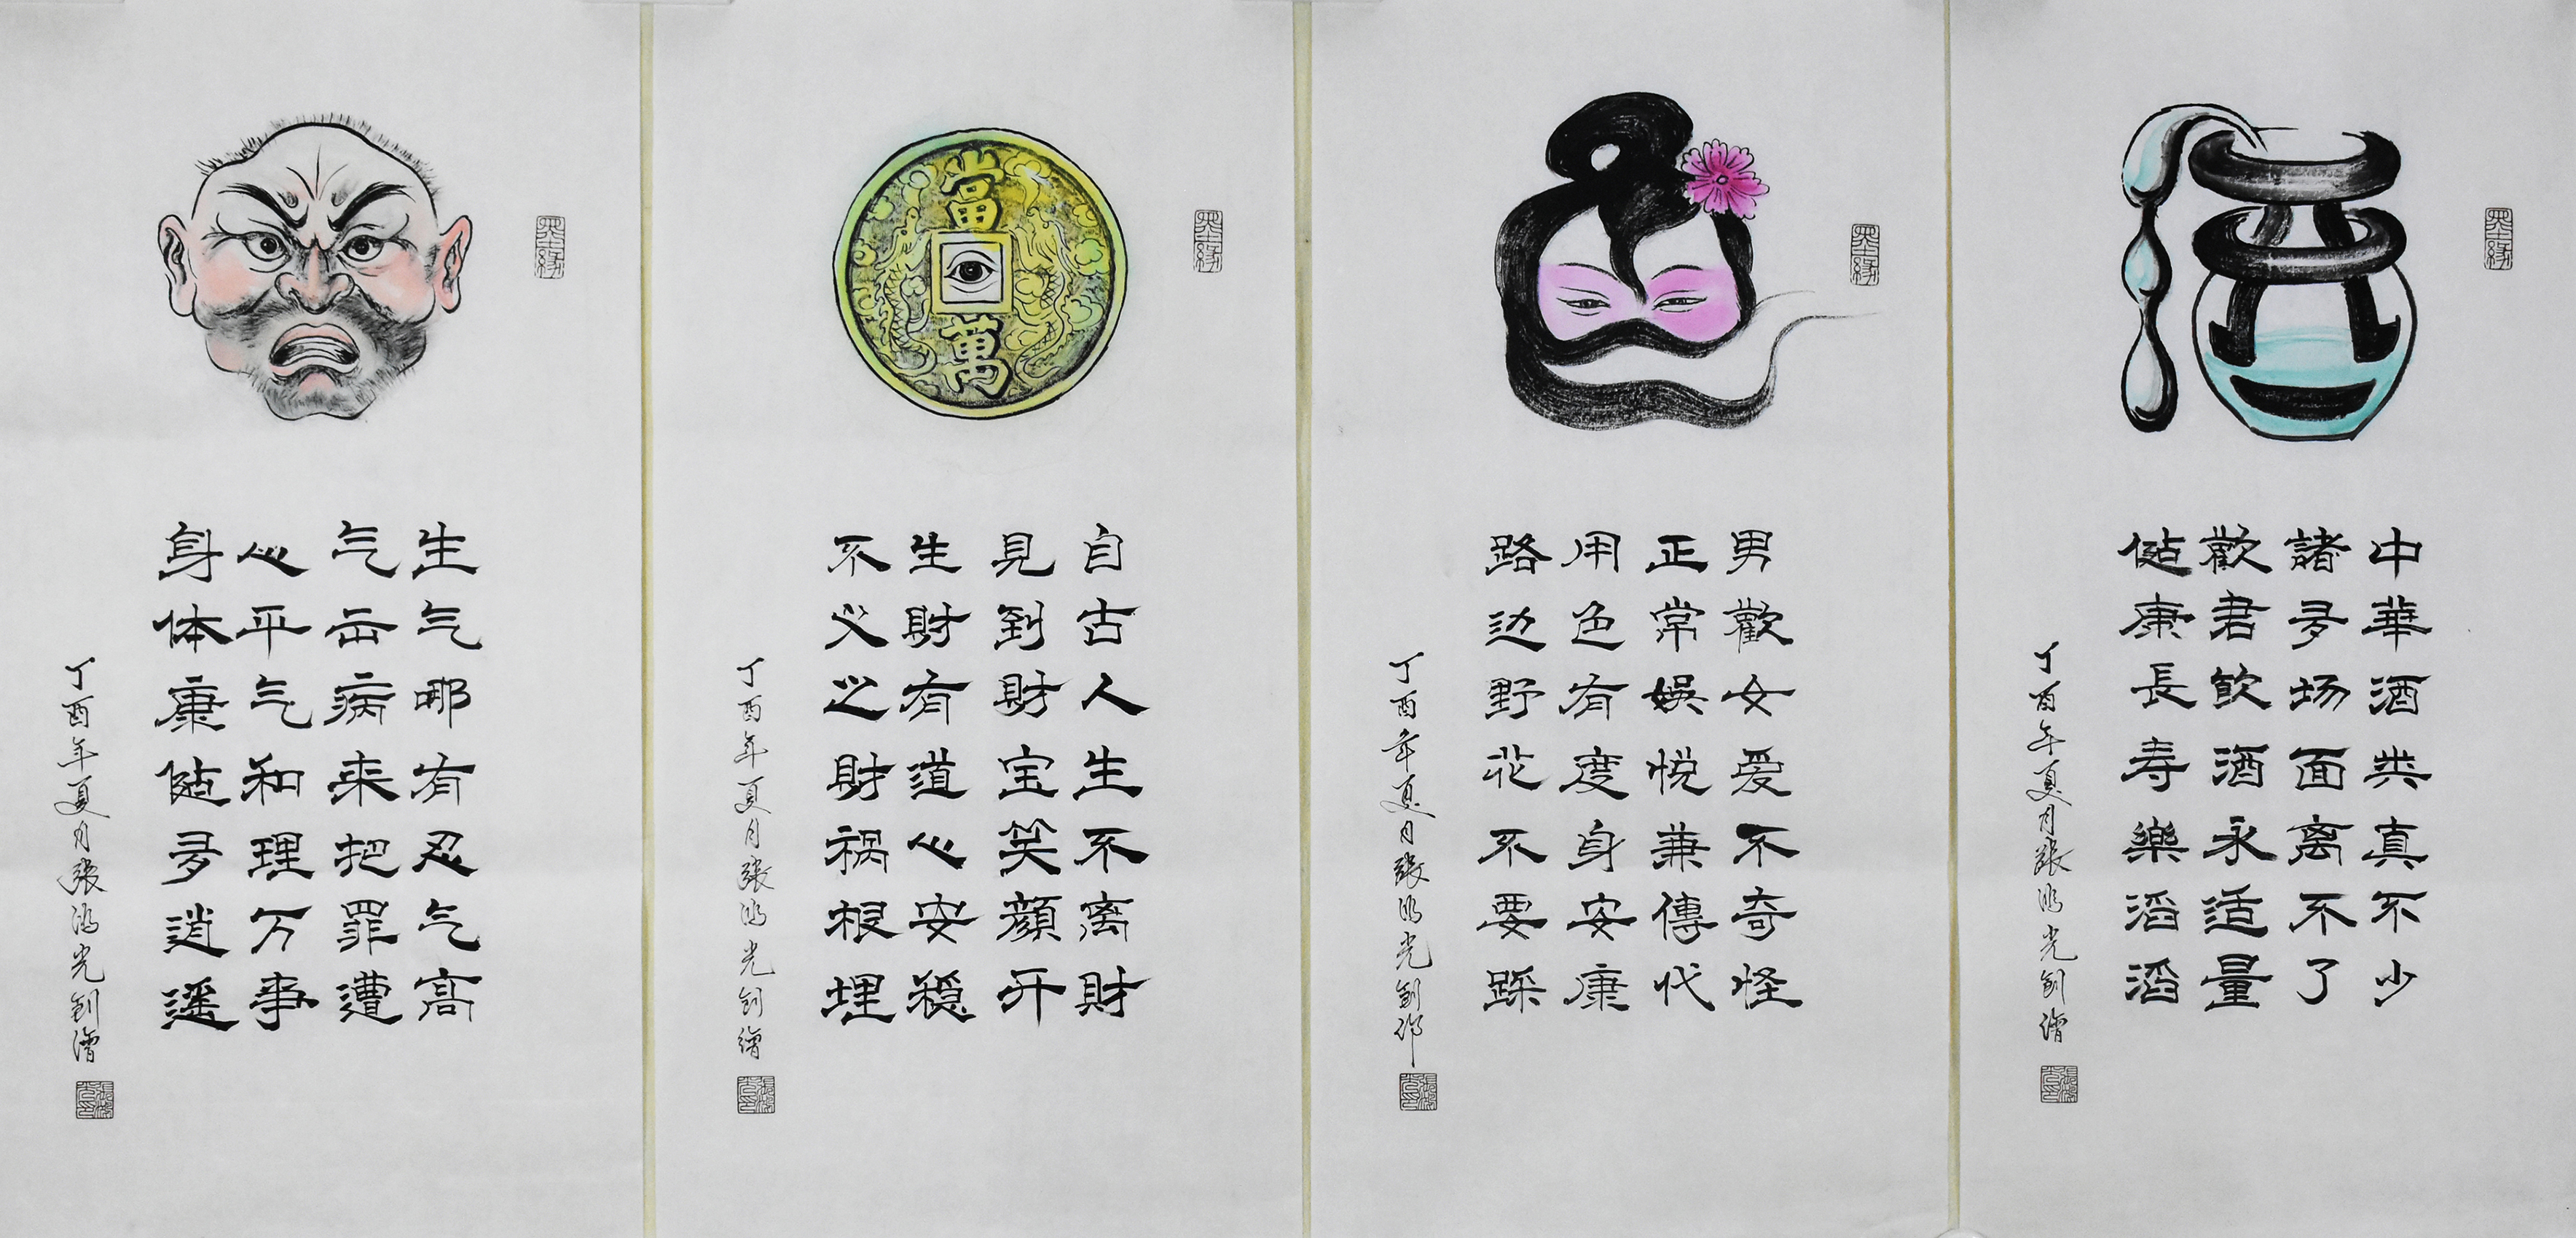 墨缘
酒
中華酒典真不少
諸多场面离不了
歡君飲酒永适量
健康長寿樂滔滔
丁酉年夏月張鸿光創繪
墨缘
男歡女爱不奇怪
正常娛悦兼傳代
用色有度身安康
路边野花不要踩
丁酉年夏月張鸿光創作
墨缘
當萬
自古人生不离財
見到財宝笑顔开
生財有道心安稳
不义之財祸根埋
丁酉年夏月張鸿光創繪
墨缘
生气哪有忍气高
气出病来把罪遭
心平气和理万事
身体康健多逍遥
丁酉年夏月張鸿光創繪